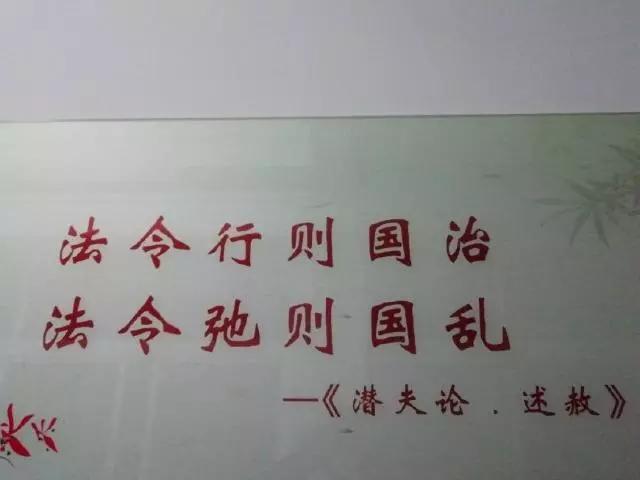 法令行则国治
法令弛则国乱
—《潜夫论.述赦》